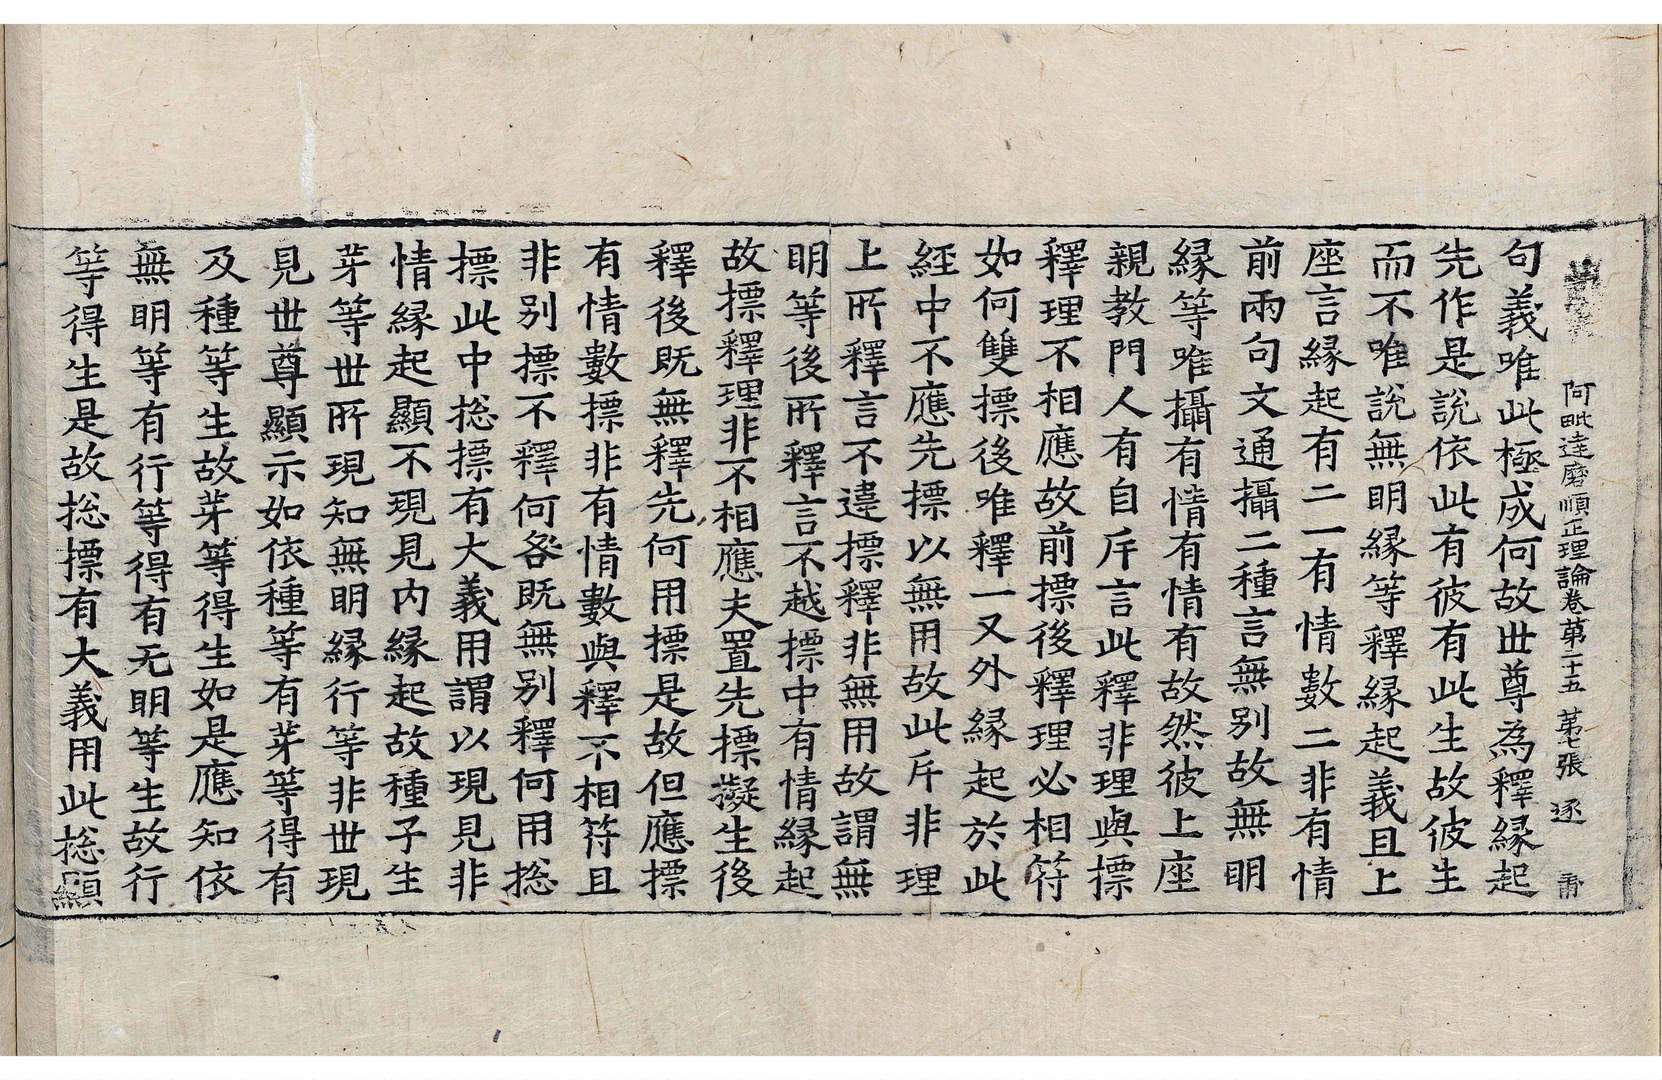 阿毗達磨順正理論卷第二十五 第七張 逐
句義唯此極成何故世尊為釋縁起
先作是說依此有彼有此生故彼生
而不唯說無明縁等釋縁起義且上
座言縁起有二一有情數二非有情
前兩句文通攝二種言無别故無明
縁等唯攝有情有情有故然彼上座
親教門人有自斥言此釋非理與摽
釋理不相應故前摽後釋理必相符
如何雙摽後唯釋一又外縁起於此
經中不應先摽以無用故此斥非理
上所釋言不違摽釋非無用故謂無
明等後所釋言不越摽中有情縁起
故摽釋理非不相應夫置先摽擬生後
釋後既無釋先何用摽是故但應摽
有情數摽非有情數與釋不相符且
非别摽不釋何咎既無别釋何用捴
摽此中捴摽有大義用謂以現見非
情縁起顯不現見内縁起故種子生
芽等世所現知無明縁行等非世現
見世尊顯示如依種等有芽等得有
及種等生故芽等得生如是應知依
無明等有行等得有无明等生故行
等得生是故捴摽有大義用此捴顯